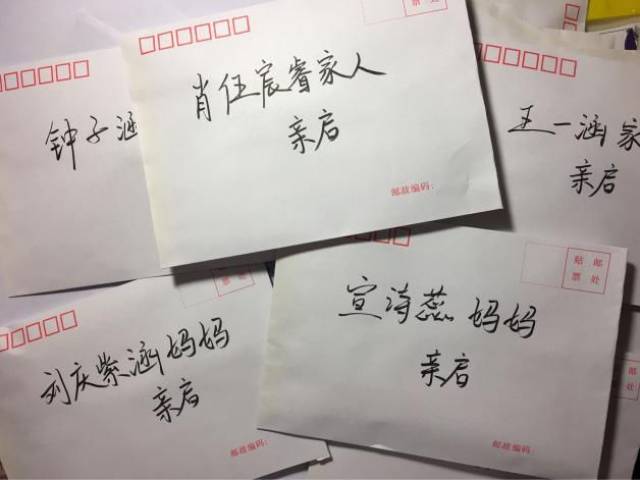 钟子涵
肖伍宸睿家人
亲启
邮政编码：
王一涵家
亲启
票处
贴邮
票处
宣诗蕊妈妈
亲启
邮政编码：
刘庆紫涵妈妈
亲启
邮政编码：